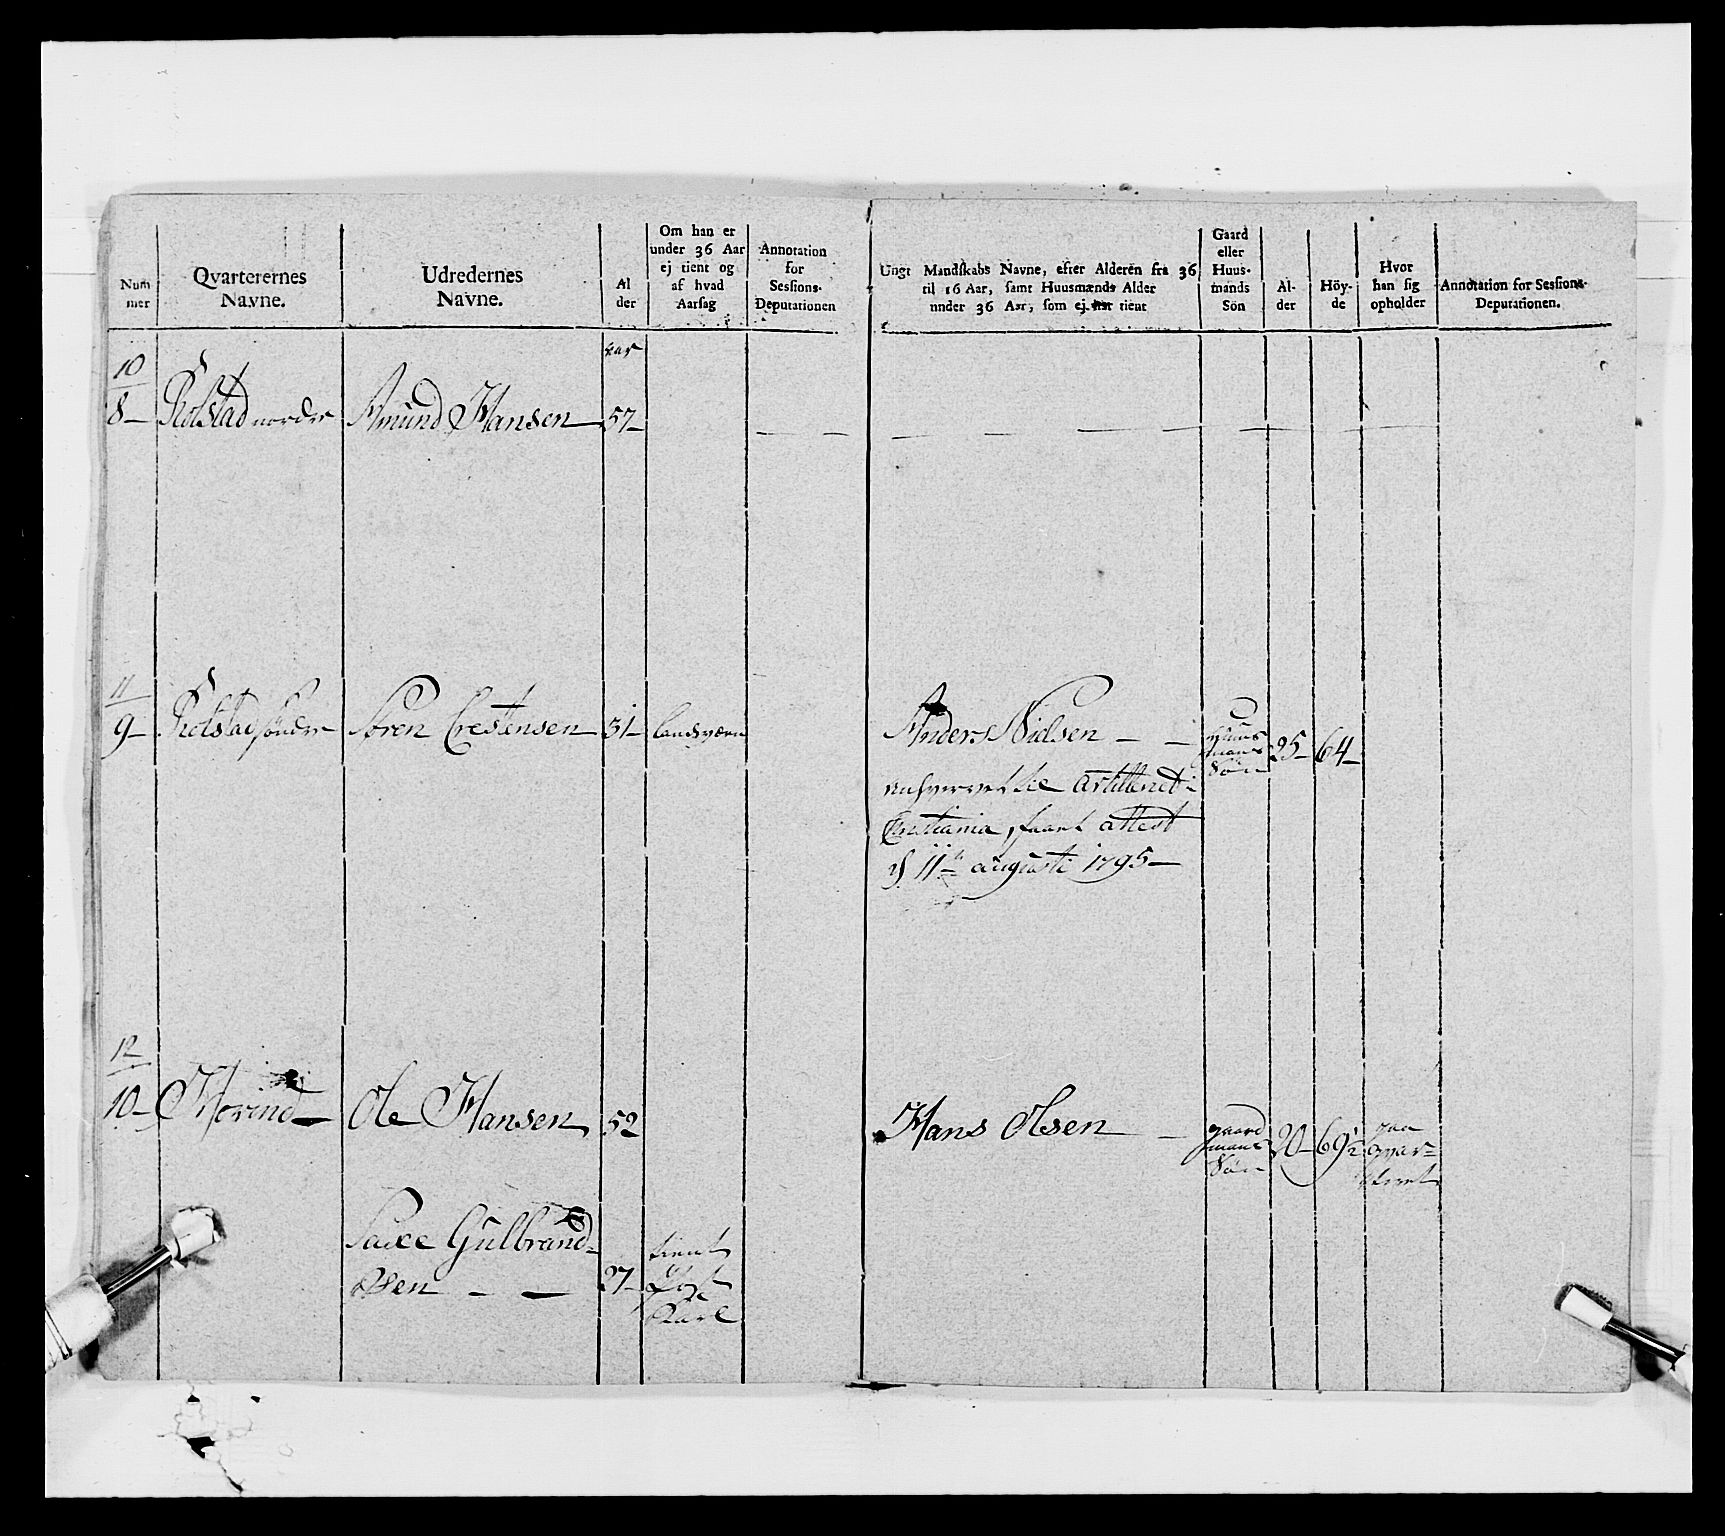 Num
mer
Qvarterernes
Navne.
Udredernes
Navne.
Al
der
Om han er
under 36 Aar
ej tient og
af hvad
Aarsag
Annotation
for
Sessions-
Deputationen
Ungt Mandskabs Navne, efter Alderen fra 36
til 16 Aar, samt Huusmænds Alder
under 36 Aar, som ej har tient
Gaard
eller
Huus-
mands
Sön
Al-
der
Höy-
de
Hvor
han sig
opholder
Annotation for Sessions-
Deputationen.
aar
10
8 - Rolstad nordre Amund Hansen 57-
11
9- Rolstad søndre Soren Crestensen 31- landværn Anders Nielsen - - Huus
mans
Søn 25- 64-
til Artilleriet i
Cristiania, faaet attest
d. 11te augusti 1795-
12
10- Horind Ole Hansen 52 Hans Olsen - gaard
mans
Søn 20- 69 1/2 paa
qvar-
teret
Saxe Gulbrand-
sen - - 27- tient
Post
Karl